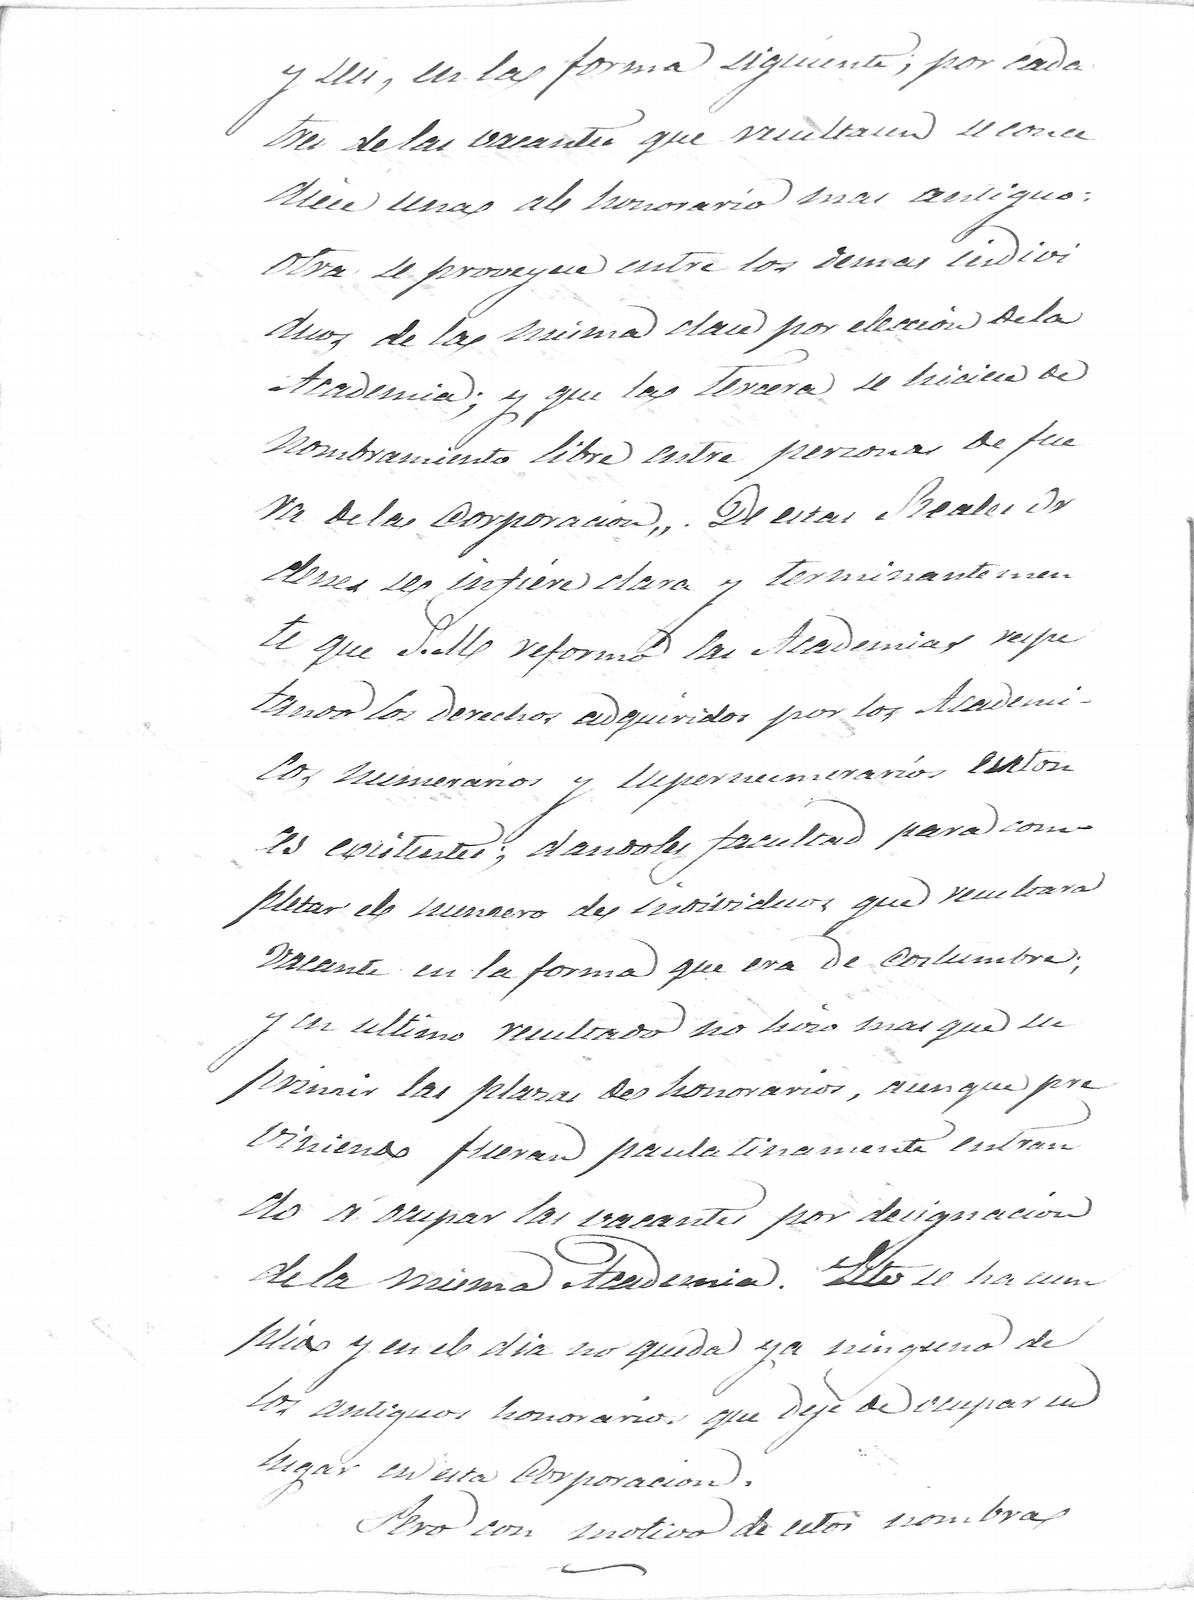 y seis, en la forma siguiente; por cada
tres de las vacantes que resultasen se conce
diese una al honorario mas antiguo:
otra se proveyese entre los demas indivi
duos de la misma clase por eleccion de la
Academia; y que la tercera se hiciese de
nombramiento libre entre personas de fue
ra de la Corporacion,,. De estas Reales Or
denes se infiere clara y terminantemen
te que S.M. reformó las Academias respe
tando los derechos adquiridos por los Academi-
cos numerarios y supernumerarios enton
ces existentes; dandoles facultad para com-
pletar el numero de individuos que resultara
vacante en la forma que era de costumbre;
y en ultimo resultado no hizo mas que su
primir las plazas de honorarios, aunque pre
viniendo fueran paulatinamente entran
do á ocupar las vacantes por designacion
de la misma Academia. Esto se ha cum
plido y en el dia no queda ya ninguno de
los antiguos honorarios que deje de ocupar su
lugar en esta Corporacion.
Pero con motivo de estos nombra